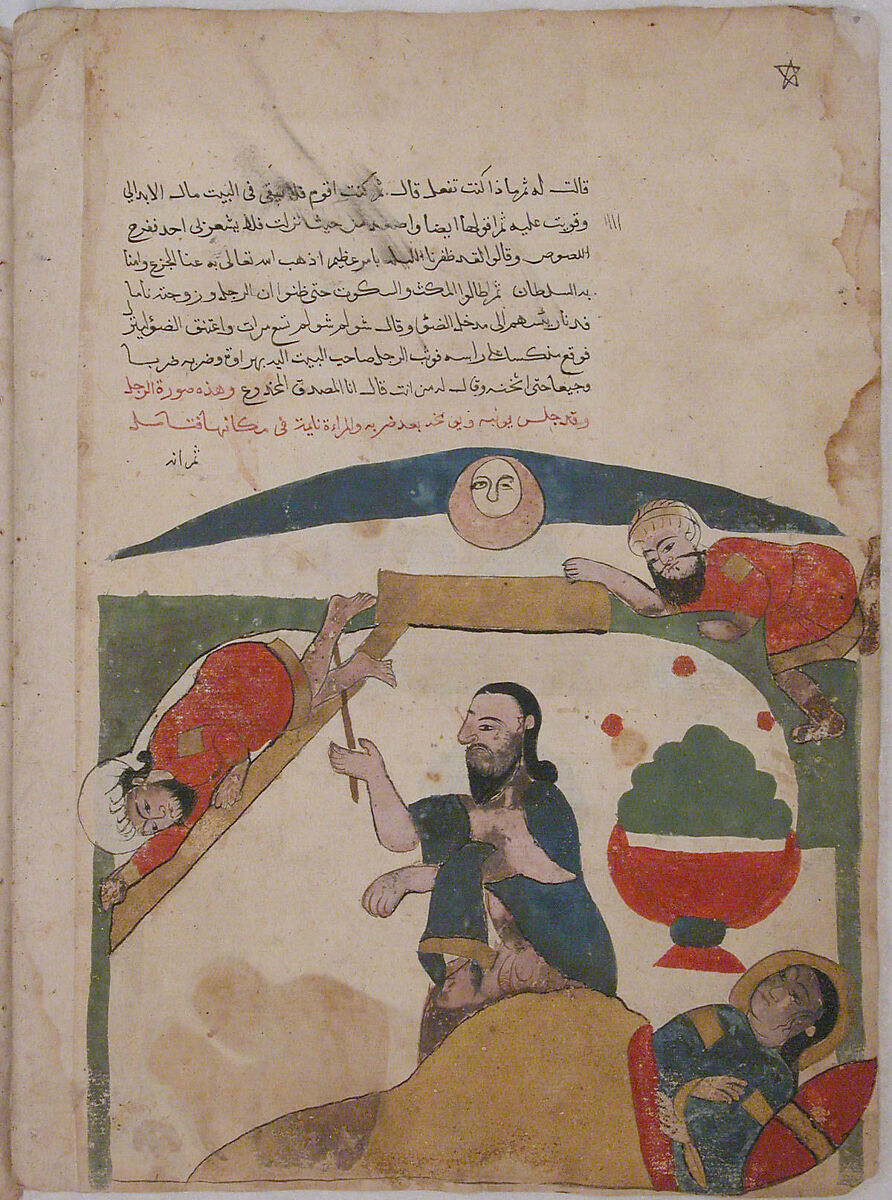 قالت له ثم ماذا كنت تفعل قال ثم كنت اقوم فلا يبقى فى البيت مال الا بدالى
وقويت عليه ثم اقولها ايضا واصعد من حيث نزلت فلا يشعر بى احد ففرح
اللصوص وقالوا لقد ظفرنا الليلة بامر عظيم اذهب الله تعالى به عنا الجزع وامنا
به السلطان ثم اطالوا المكث والسكوت حتى ظنوا ان الرجل وزوجته ناما
فدنا ريسهم الى مدخل الضؤ وقال شولم شولم سبع مرات واعتنق الضؤ لينزل
فوقع منكسا على راسه فوثب الرجل صاحب البيت اليه بهراوة وضربه ضربا
وجيعا حتى اثخنه وقال له من انت قال انا المصدق المخدوع وهذه صورة الرجل
وقد جلس يونبه ويوبخه بعد ضربه والمراة نايمة فى مكانها
ثم انه